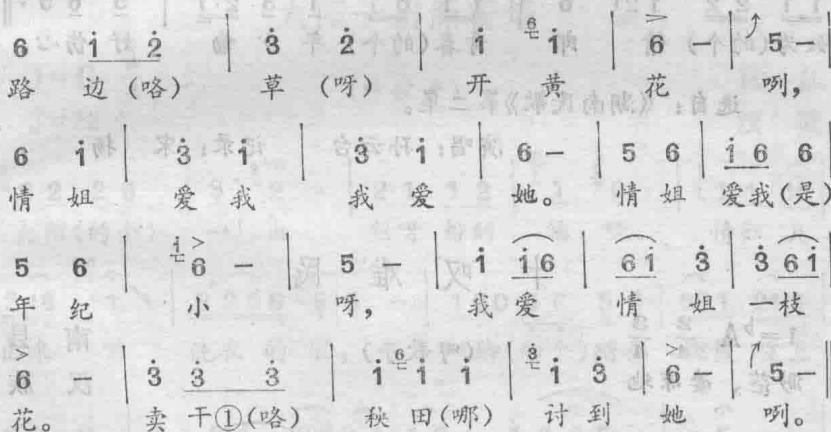 6 i 2 | 3 2 | i 6 i | 6 — | 5 |
路 边 (咯) 草 (呀) 开 黄 花 咧,
6 i | 3 i | 3 i | 6 — | 5 6 | i 6 6 |
情 姐 爱 我 我 爱 她。 情 姐 爱我(是)
5 6 | i 6 — | 5 — | i i6 | 6i 3 | 3 6i |
年 纪 小 呀, 我 爱 情 姐 一枝
6 — | 3 3 3 | 1 6 1 1 | 3 i 3 | 6 — | 5 — ‖
花。 卖 干①(咯) 秧 田(哪) 讨 到 她 咧。